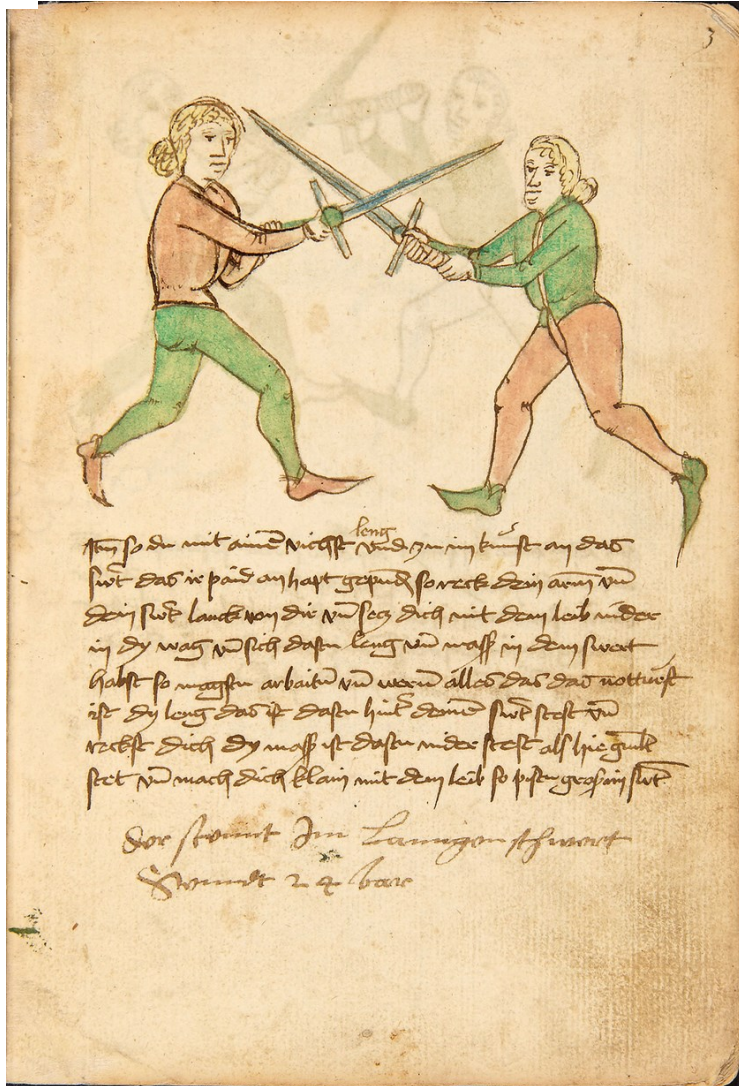 3
leng
Itm̄ so du mit ainē vichst vnd zu im kumst an das
swt̄ das ir paid an hapt gepundn̄ so reck dein arm vn̄
dein swt̄ lanck von dir vn̄ secz dich mit dem leib nider
in dy wag vn̄ sich dastu leng vn̄ mass in dem swert
habst so magstu arbaitn̄ vn̄ wern̄ alles das das notturft
ist dy leng das ist dastu hintr̄ deinem swt̄ stest vn̄
reckst dich dy mass ist dastu nider stest als hie gmalt
stet vn̄ mach dich klain mit dem leib so pistu gros im swt̄
Der Im Lanngen schwert
24 bar